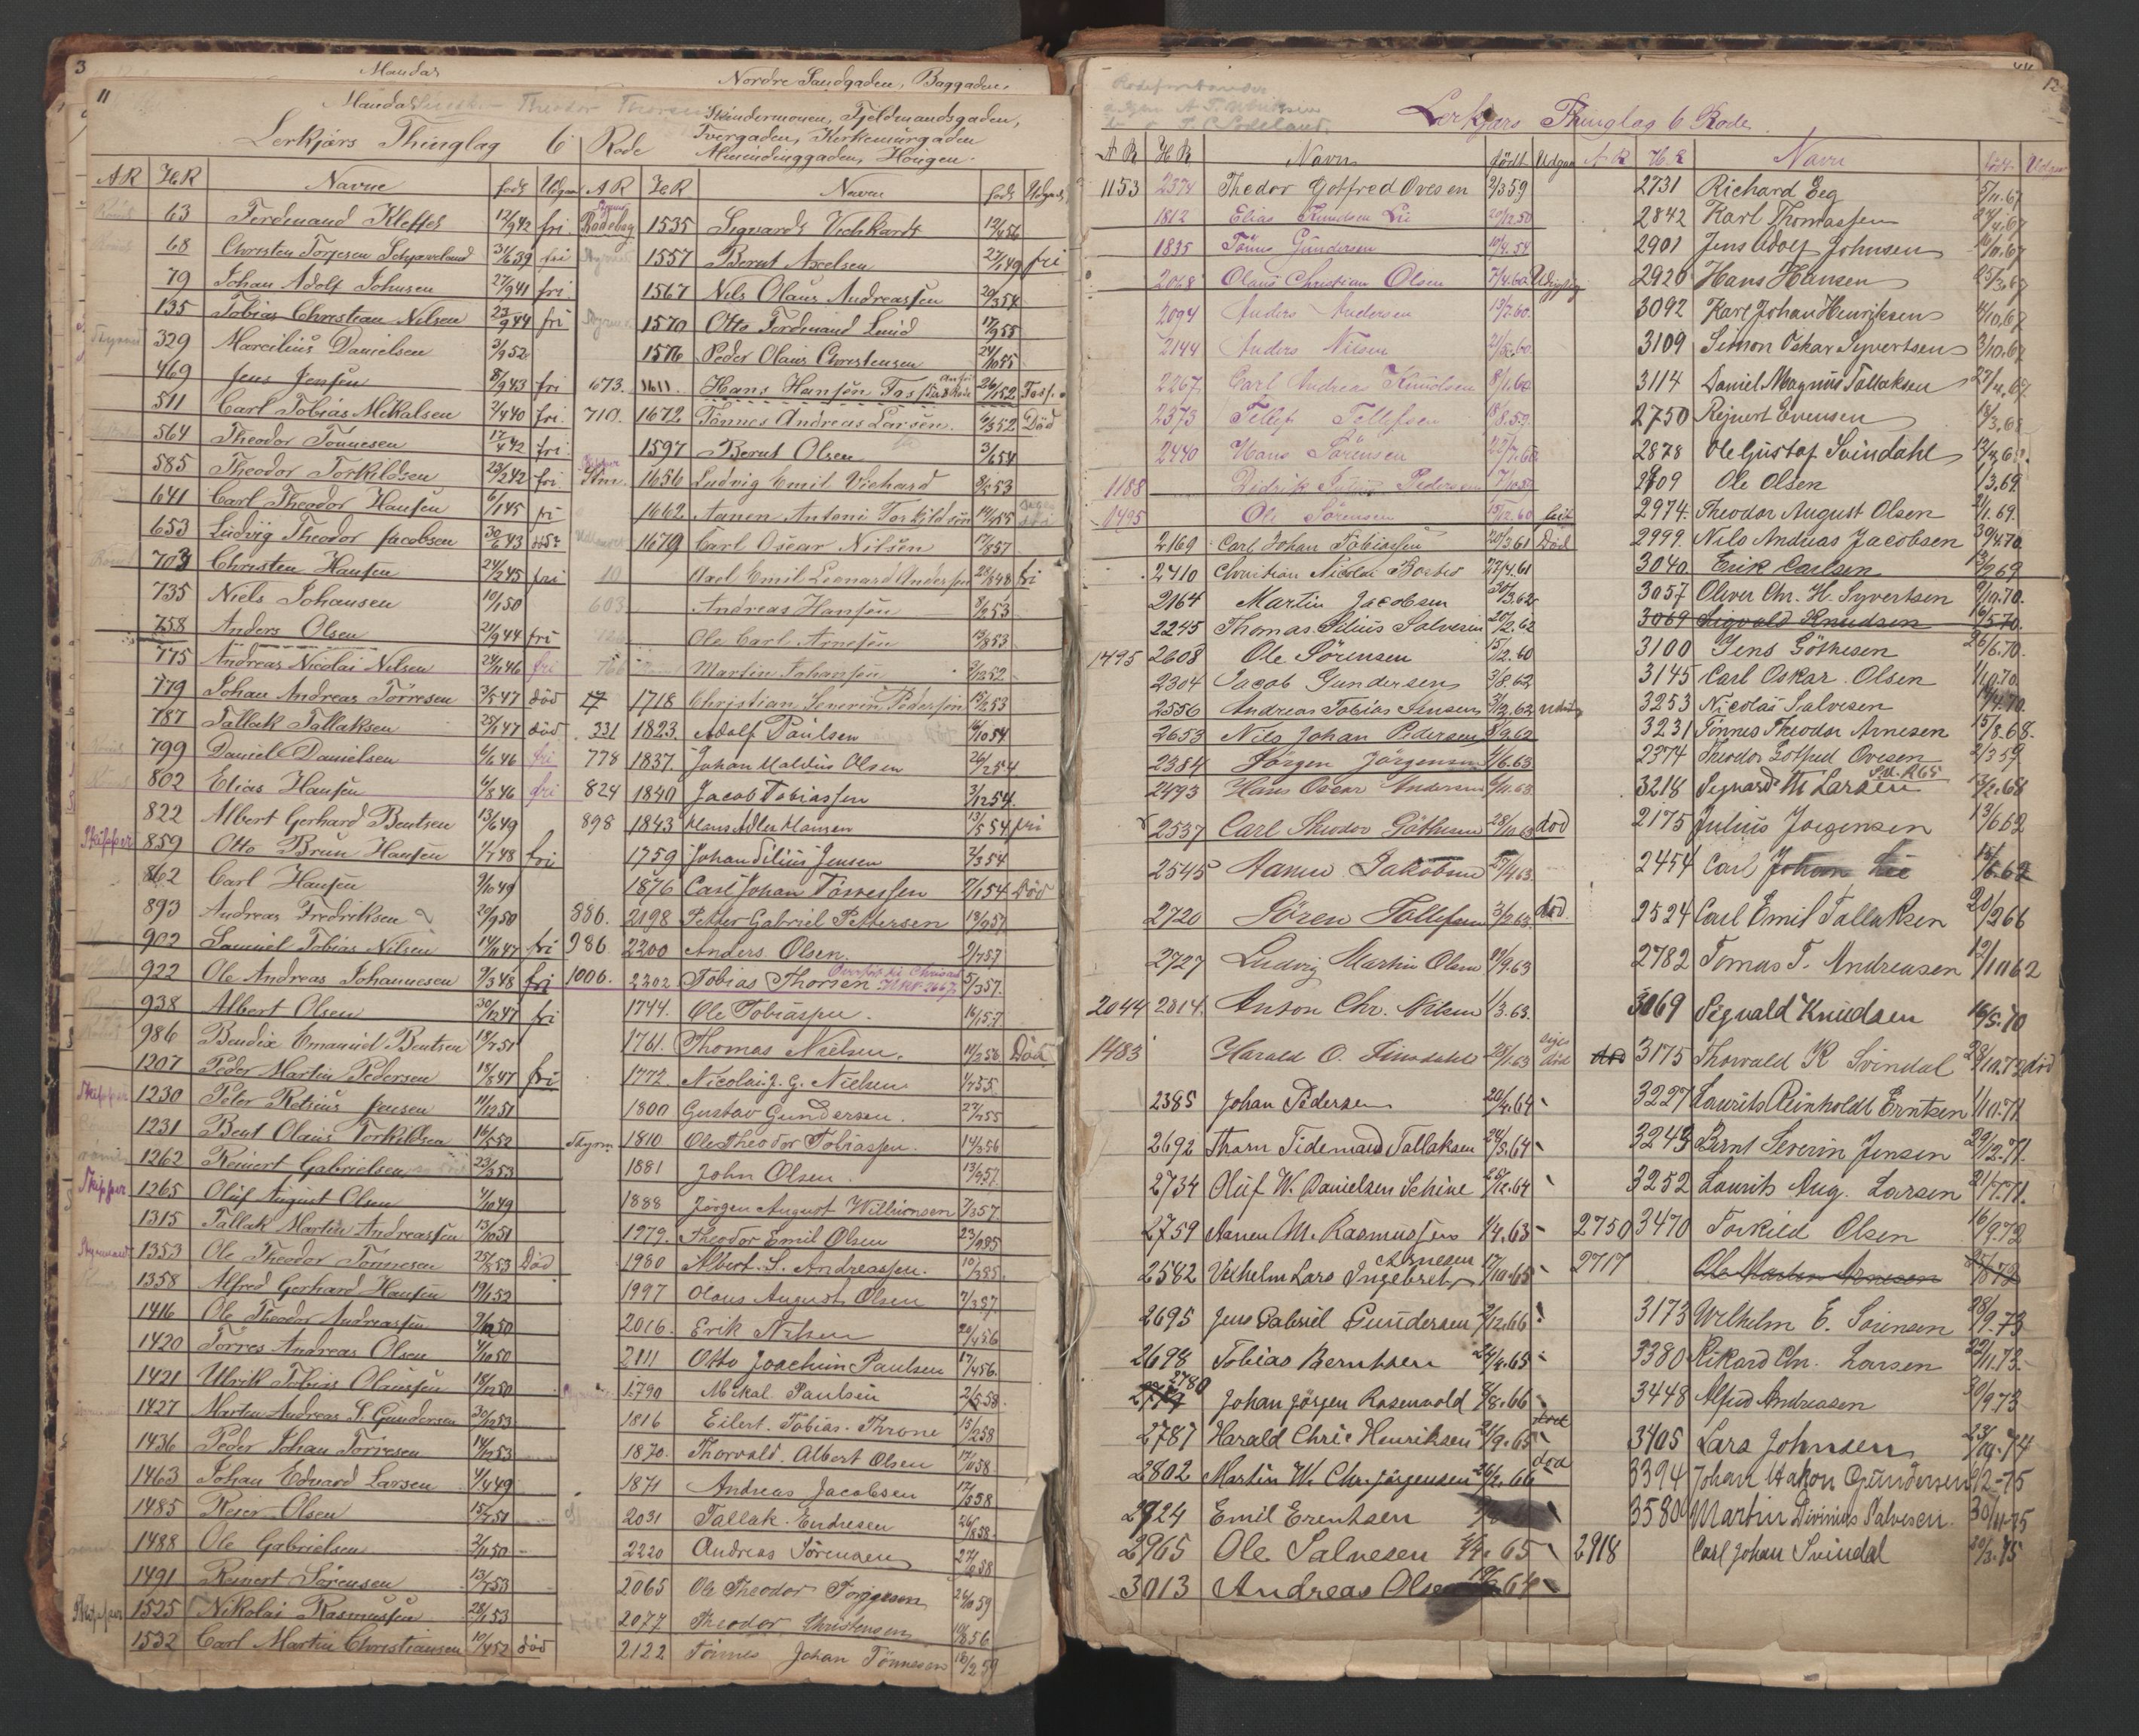 3
Mandas
Nordre Sandgaden, Baggaden,
11
Mandas
Theodor
Skindermoen, Fjeldmandsgaden,
Lerkjærs Thinglag 6 Rode
Tvergaden, Kirkemurgaden
Almendinggaden, Haugen.
AR HR Navne født Udgaa
63 Ferdinand Kleffel 12/9 42 fri
68 Christen Torjesen 31/6 39 fri
79 Johan Adolf Johnsen 27/9 41 fri
135 Tobias Christian Nilsen 23/9 44 fri
329 Marcilius Danielsen 3/9 52
469 Jens Jenssen 8/9 43 fri
511 Carl Tobias Mikalsen 2/4 40 fri
564 Theodor Tönnesen 17/4 42 fri
585 Theodor Torkildsen 23/2 42 fri
641 Carl Theodor Hansen 6/1 45 fri
653 Ludvig Theodor Jacobsen 30/6 43
703 Christen Hansen 24/2 45 fri
735 Niels Johansen 10/1 50
758 Anders Olsen 21/9 44 fri
775 Andreas Nicolai Nilsen 24/11 46 fri
779 Johan Andreas Törresen 3/5 47 död
787 Tallak Tallaksen 25/1 47 död
799 Daniel Danielsen 6/6 46 fri
802 Elias Hansen 6/8 46 fri
822 Albert Gerhard Bentsen 13/6 49
Skipper 859 Otto Brun Hansen 1/7 48 fri
862 Carl Hansen 9/10 49
893 Andreas Fredriksen 20/9 50
902 Samuel Tobias Nilsen 14/11 47 fri
922 Ole Andreas Johannesen 9/3 48 fri
938 Albert Olsen 30/12 47 fri
986 Bendix Emanuel Bentsen 18/7 51
1207 Peder Martin Pedersen 18/8 47 fri
Skipper 1230 Peter Retsius Jensen 11/12 51
1231 Bent Olaus Torkildsen 16/5 52
1262 Reinert Gabrielsen 23/3 53
Skipper 1265 Oluf August Olsen 1/10 49
1315 Tallak Martin Andreassen 13/10 51
Styrmand 1353 Ole Theodor Tönnesen 25/8 53 Död
1358 Alfred Gerhard Hansen 19/1 52
1416 Ole Theodor Andreassen 9/12 50
1420 Torres Andreas Olsen 4/10 50
1421 Ulrik Tobias Olaussen 18/12 50
1427 Martin Andreas S. Gundersen 30/12 53
1436 Peder Johan Torresen 14/12 53
1463 Johan Edvard Larsen 4/4 49
1485 Reier Olsen 15/7 51
1488 Ole Gabrielsen 2/11 50
1491 Reinert Sörensen 13/7 53
Skipper 1525 Nikolai Rasmussen 28/1 53
1532 Carl Martin Christiansen 10/4 52 död
AR HR Navne født Udgaa
1535 Sigvardt 12/4 56
1557 Bernt Axelsen 27/1 49 fri
1567 Nils Olaus Andreassen 20/3 54
1570 Otto Ferdinand Lund 17/9 55
1576 Peder Olaus Christensen 24/10 55
673. 1611. Hans Hansen 26/1 52
710. 1672 Tönnes Andreas Larsen. 6/3 52 Död
1597 Bernt Olsen 3/6 54
1656 Ludvig Emil Vichard 9/2 53
1662 Aanen Antoni Torkildsen 14/4 55
1679 Carl Oscar Nilsen 17/8 57
10 Axel Emil Leonard Andersen 23/8 48 fri
603 Andreas Hansen 8/2 53
Ole Carl Arnesen 12/8 53
Martin Johansen 2/12 52
17 1718 Christian Severin Pedersen 12/2 53
331 1823. Adolf Paulsen 16/10 54
778 1837. Johan Maldus Olsen 26/2 54
824 1840 Jacob Tobiassen 3/12 54
898 1843 Hans Adler Hansen 13/5 54 fri
1759 Johan Silius Jensen 2/3 54
1876 Carl Johan Törresen 7/1 54 Död
886. 2198 Petter Gabriel Pettersen 13/9 57
986 2200 Anders Olsen. 9/7 57
1006. 2202 Tobias Thorsen 5/3 57.
1744. Ole Tobiassen. 16/1 57
1761. Thomas Nielsen. 14/2 56 Död
1772. Nicolai J. G. Nielsen 1/7 55
1800 Gustav Gundersen. 27/2 55
Styrm. 1810 Ole Theodor Tobiassen 14/3 56
1881 John Olsen. 13/9 57
1888 Jörgen August Willumsen 7/3 57
1979. Theodor Emil Olsen 23/9 85
1980 Albert. S. Andreassen. 10/3 85
1997 Olaus August Olsen 7/3 87
2016. Erik Nilsen 20/4 56
2111 Otto Joachim Paulsen 17/4 56.
1790 Mikal Paulsen 2/5 58
1816 Eilert. Tobias. Throne 15/2 58
1870. Thorvald. Albert Olsen 17/10 58
1871 Andreas Jacobsen 17/5 58
2031 Tallak. Endresen 26/8 58
2220 Andreas Sörensen 27/6 58
2065 Ole Theodor Torjesen 26/10 59
2077 Theodor Christensen 10/8 56
2122 Tönnes Johan Tönnesen 18/2 59
12
Lerkjærs Thinglag 6 Rode.
AR HR Navn født Udgaa
1153 2374 Thedor Gotfred Ovesen 2/3 59
1812 Elias Knudsen Lie 20/12 50
1835 Tönnes Gundersen 10/4 54
2068 Olaus Christian Olsen 7/4 60
2094 Anders Andersen 13/7 60.
2144 Anders Nilsen 2/5 60
2267 Carl Andreas Knudsen 8/1 60
2373 Tellef Tellefsen 18/8 59.
2440 Hans Sörensen
1188 Didrik Julius Pedersen
1495 Ole Sörensen 15/12 60
2169 Carl Johan Tobiassen 20/3 61 Död
2410 Christian Nicolai 17/4 61
2164 Martin Jacobsen 30/3 62
2245 Thomas Silius Salvesen 20/2 62
1495 2608 Ole Sörensen 15/12 60
2304 Jacob Gundersen 3/8. 62
2556 Andreas Tobias Jensen 3/12. 62
2653 Nils Johan Pedersen 8/9 62
2384 Jörgen Jörgensen 4/6. 63
2493 Hans Oscar Andersen 6/11. 63
2537 Carl Theodor Göthesen 28/10 63 död
2545 Hans Jakobsen 27/4 63
2720 Sören Tollefsen 3/12 63 död.
2727 Ludvig Martin Olsen 19/9. 63
2044 2814. Anton Chr. Nilsen 1/3. 63.
1483 Harald O. Svindahl 25/1. 63 död
2385 Johan Pedersen 20/4. 64
2692 Tharn Tidemand Tallaksen 24/5. 64
2734 Oluf W. Danielsen Schine 25/12. 64
2759 Aanen M. Rasmussen 4/4. 63
2582 Vilhelm Lars Ingebret Arnesen 17/10. 65
2695 Jens Gabriel Gundersen 2/12. 66
2698 Tobias Berntsen 24/4. 65
2780 Johan Jörgen Rosenvold 8/8. 66
2787 Harald Chr. Henriksen 21/9. 65 död
2802 Martin W. Chr. Jörgensen 26/2. 66 död
2924 Emil Erentsen
2965 Ole Salvesen 4/4. 65
3013 Andreas Olsen
AR H.R Navn født Udgaa
2731 Richard Eeg 5/11. 67
2842 Karl Thomassen 24/4. 67
2901 Jens Adolf Johnsen 10/11. 67
2920 Hans Hansen 25/3. 67
3092 Karl Johan Henriksen 4/10. 67
3109 Simon Oskar Syvertsen 3/10. 67
3114 Daniel Magnus Tallaksen 27/4. 67
2750 Reinert Evensen 18/3. 68
2878 Ole Gustaf Svindahl
2809 Ole Olsen 1/3. 69.
2974. Theodor August Olsen 2/1. 69.
2999. Nils Andreas Jacobsen 30/4 70.
3040 Erik Carlsen 13/2 69
3057 Oliver Chr. H. Syvertsen 9/10. 70.
3069 Sigvald Knudsen 16/5 70.
3100 Jens Göthesen 26/6. 70.
3145 Carl Oskar. Olsen 11/10. 70.
3253 Nicolai Salvesen
3231 Tönnes Theodor Arnesen 15/8. 68.
2374 Theodor Gotfred Ovesen 2/3 59
3218 Sigvard Th. Larsen 12/2. 68
2175 Julius Jörgensen 13/6 62
2454 Carl Johan Lie
2524 Carl Emil Tallaksen 20/2 66
2782 Tomas T. Andreasen 12/10 62
3069 Sigvald Knudsen 16/5. 70
död 3175 Thorvald R Svindal 28/10. 72 död
3227 Laurits Reinholdt Erntsen 1/10. 71
3243 Bernt Severin Jensen 29/12. 71.
3252 Laurits Aug. Larsen 21/7. 71.
2750 3470 Torkild Olsen 16/9. 72
2717 Ole Martin Arnesen
3173 Wilhelm E. Sörensen 28/9. 73
3380 Rikard Chr. Larsen 22/11. 73.
3448 Alfred Andreasen 30/9. 73
3405 Lars Johnsen
3394 Johan Hakon Gundersen 9/2 - 75
3580 Martin Divinius Salvesen. 30/11 - 75
2918 Carl Johan Svindal 20/3. 75